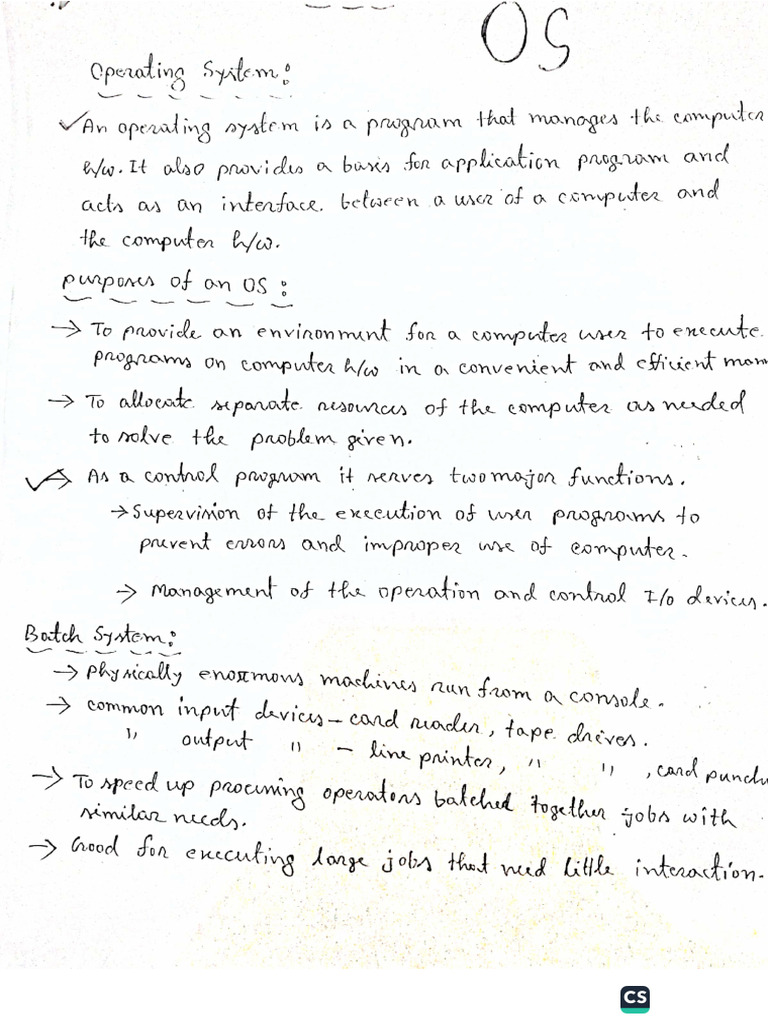 OS
Operating System:
An operating system is a program that manages the computer
h/w. It also provides a basis for application program and
acts as an interface between a user of a computer and
the computer h/w.
purposes of an OS:
→ To provide an environment for a computer user to execute
programs on computer h/w in a convenient and efficient man
→ To allocate separate resources of the computer as needed
to solve the problem given.
→ As a control program it serves two major functions.
→ Supervision of the execution of user programs to
prevent errors and improper use of computer.
→ Management of the operation and control I/O devices.
Batch System:
→ Physically enormous machines run from a console.
→ common input devices – card reader, tape drives.
" output " – line printer, " ", card punch
→ To speed up processing operators batched together jobs with
similar needs.
→ Good for executing large jobs that need little interaction.
CS